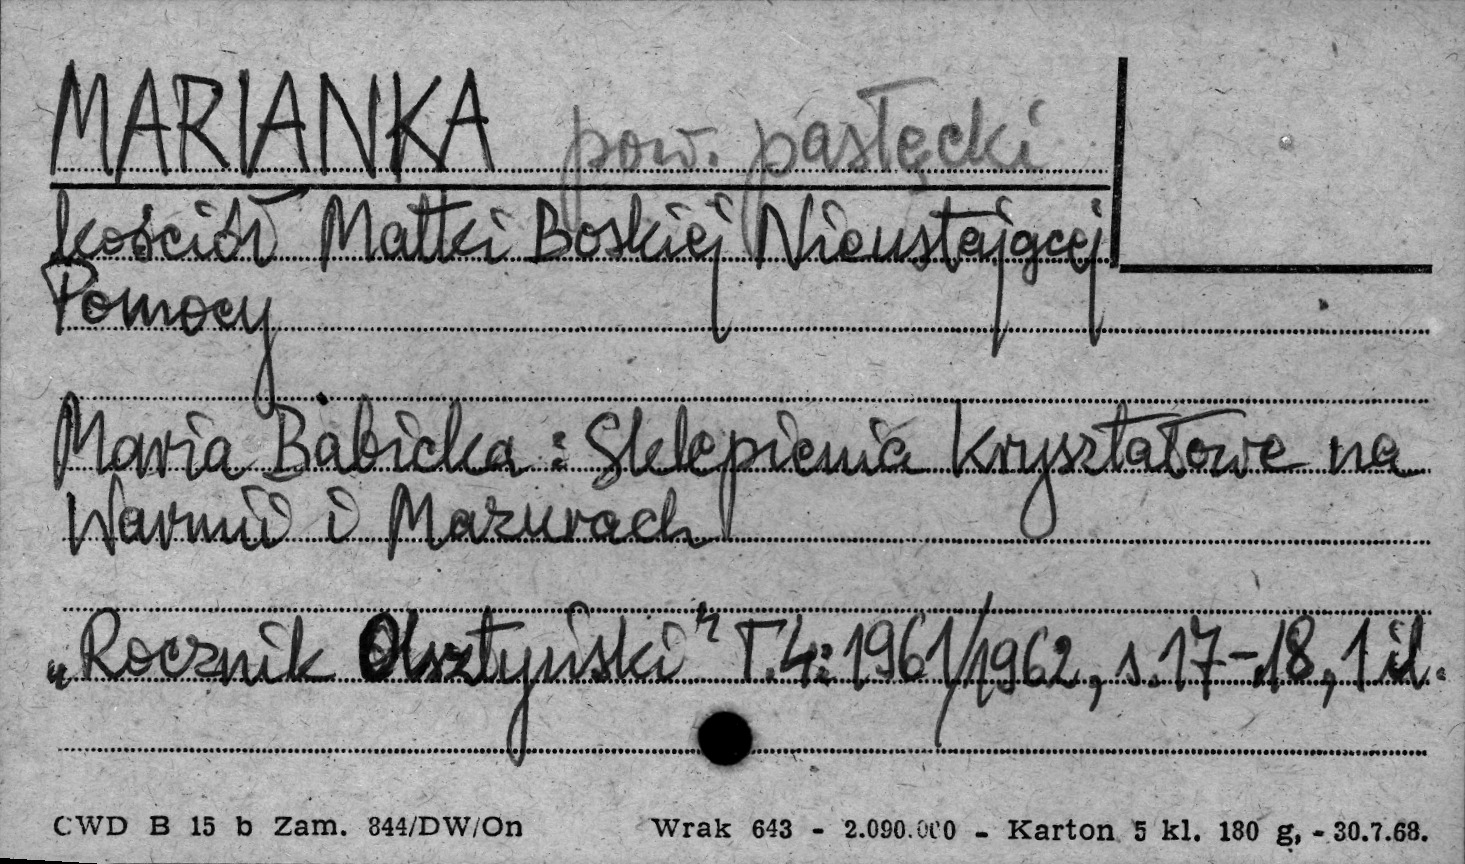 MARIANKA pow. pasłęcki
kościół Matki Boskiej Nieustającej
Pomocy
Maria Babicka: Sklepienia kryształowe na
Warmii i Mazurach
„Rocznik Olsztyński” T.4: 1961/1962, s. 17-18, 1 il.
CWD B 15 b Zam. 844/DW/On Wrak 643 - 2.090.000 - Karton 5 kl. 180 g, - 30.7.68.